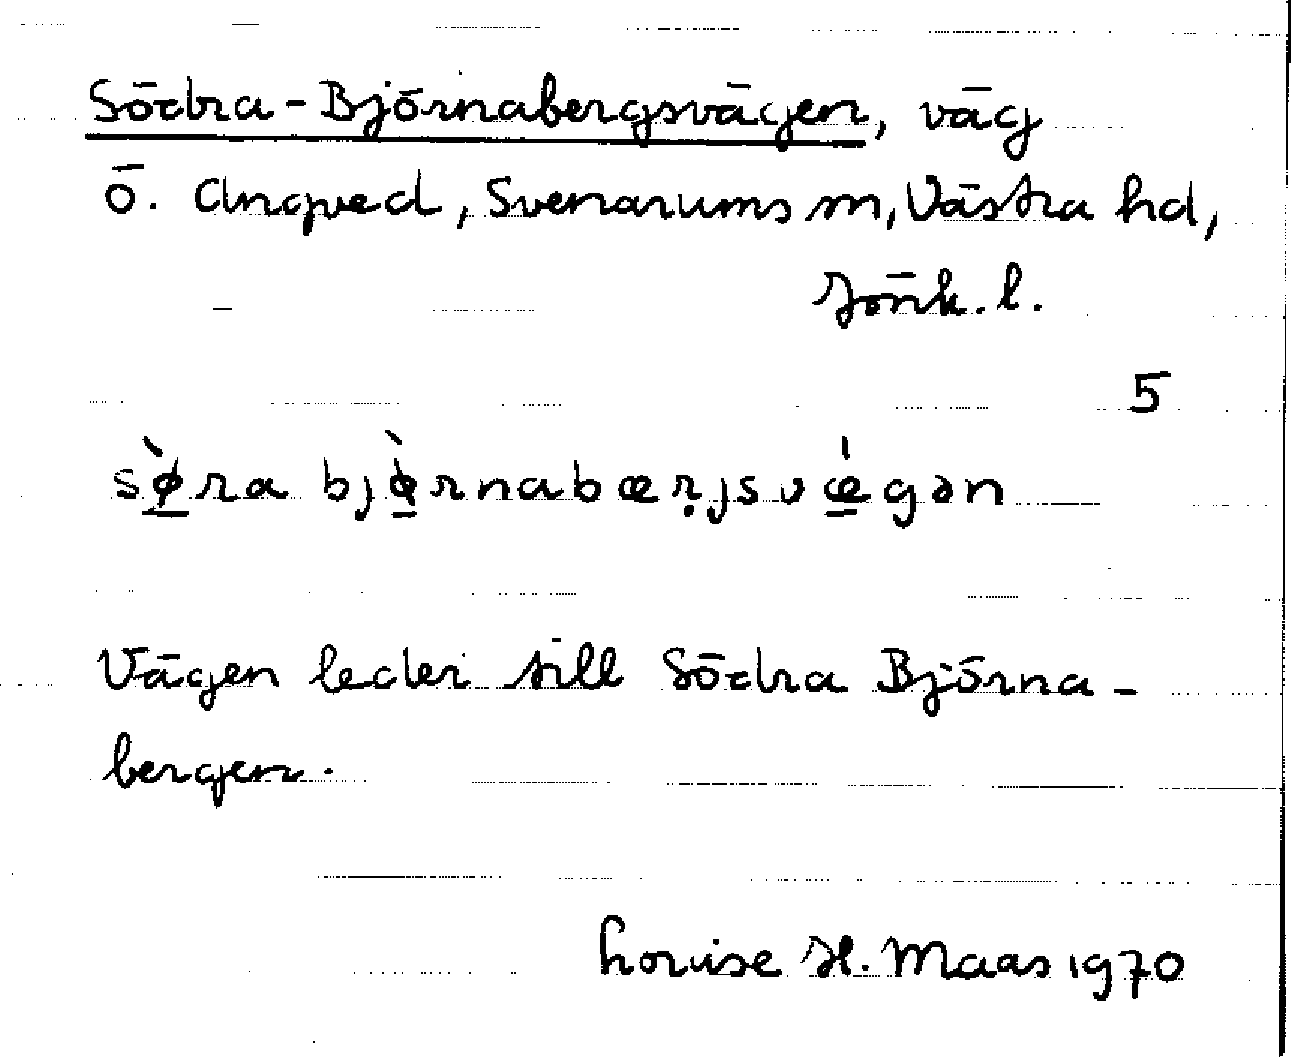 Södra-Björnabergsvägen, väg
ö. Angved, Svenarums sn, Västra hd,
Jönk. l.
5
sø̀ra bjø̀rnabærjsvǽgən
Vägen leder till Södra Björna-
bergen.
Louise H. Maas 1970